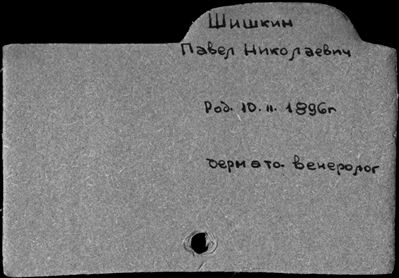 Шишкин
Павел Николаевич
Род. 10. II. 1896г
дермато. венеролог